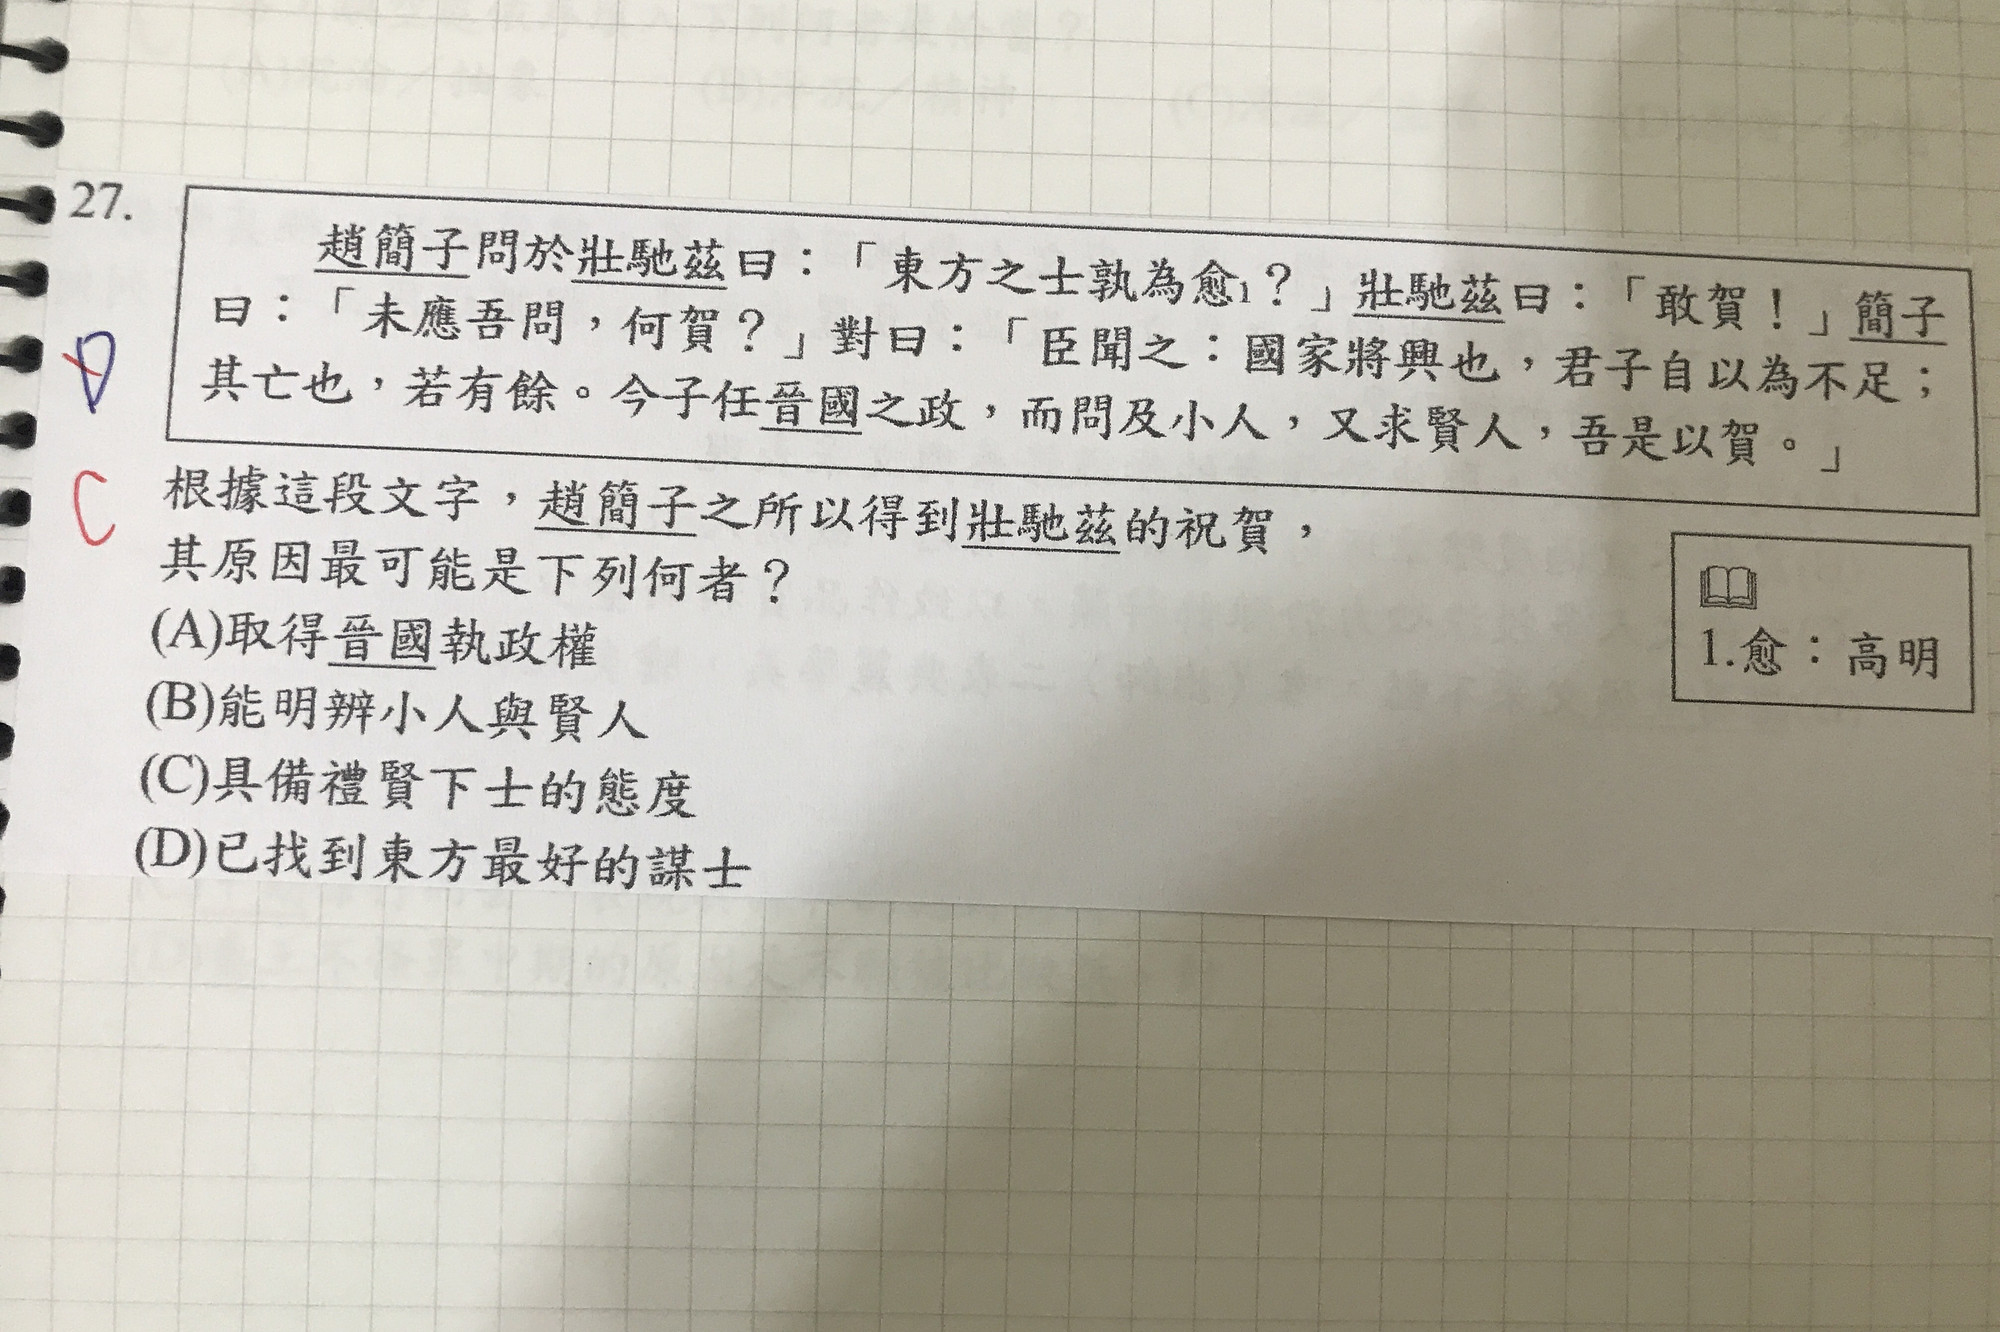 27.
趙簡子問於壯馳茲曰：「東方之士孰為愈1？」壯馳茲曰：「敢賀！」簡子
曰：「未應吾問，何賀？」對曰：「臣聞之：國家將興也，君子自以為不足；
其亡也，若有餘。今子任晉國之政，而問及小人，又求賢人，吾是以賀。」
D
C
根據這段文字，趙簡子之所以得到壯馳茲的祝賀，
其原因最可能是下列何者？
(A)取得晉國執政權
(B)能明辨小人與賢人
(C)具備禮賢下士的態度
(D)已找到東方最好的謀士
1.愈：高明